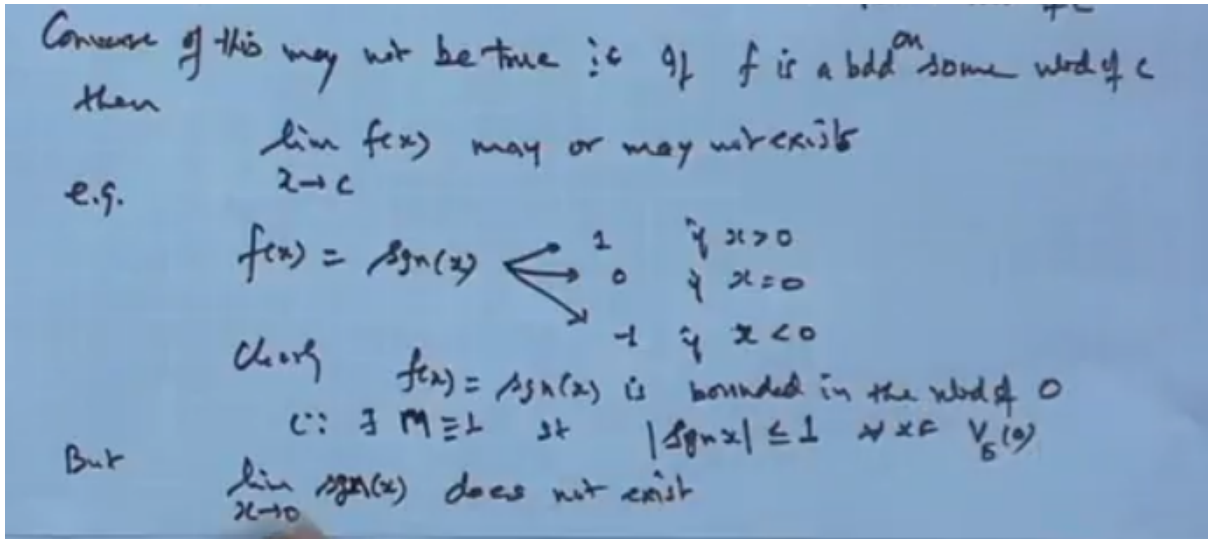 Converse of this may not be true ie If f is a bdd on some nbd of c
then
lim f(x) may or may not exists
x→c
e.g.
f(x) = sgn(x) 1 if x>0
0 if x=0
-1 if x<0
Clearly f(x) = sgn(x) is bounded in the nbd of 0
(∵ ∃ M≡1 st |sgn x| ≤ 1 ∀ x∈ V_δ(0)
But
lim sgn(x) does not exist
x→0